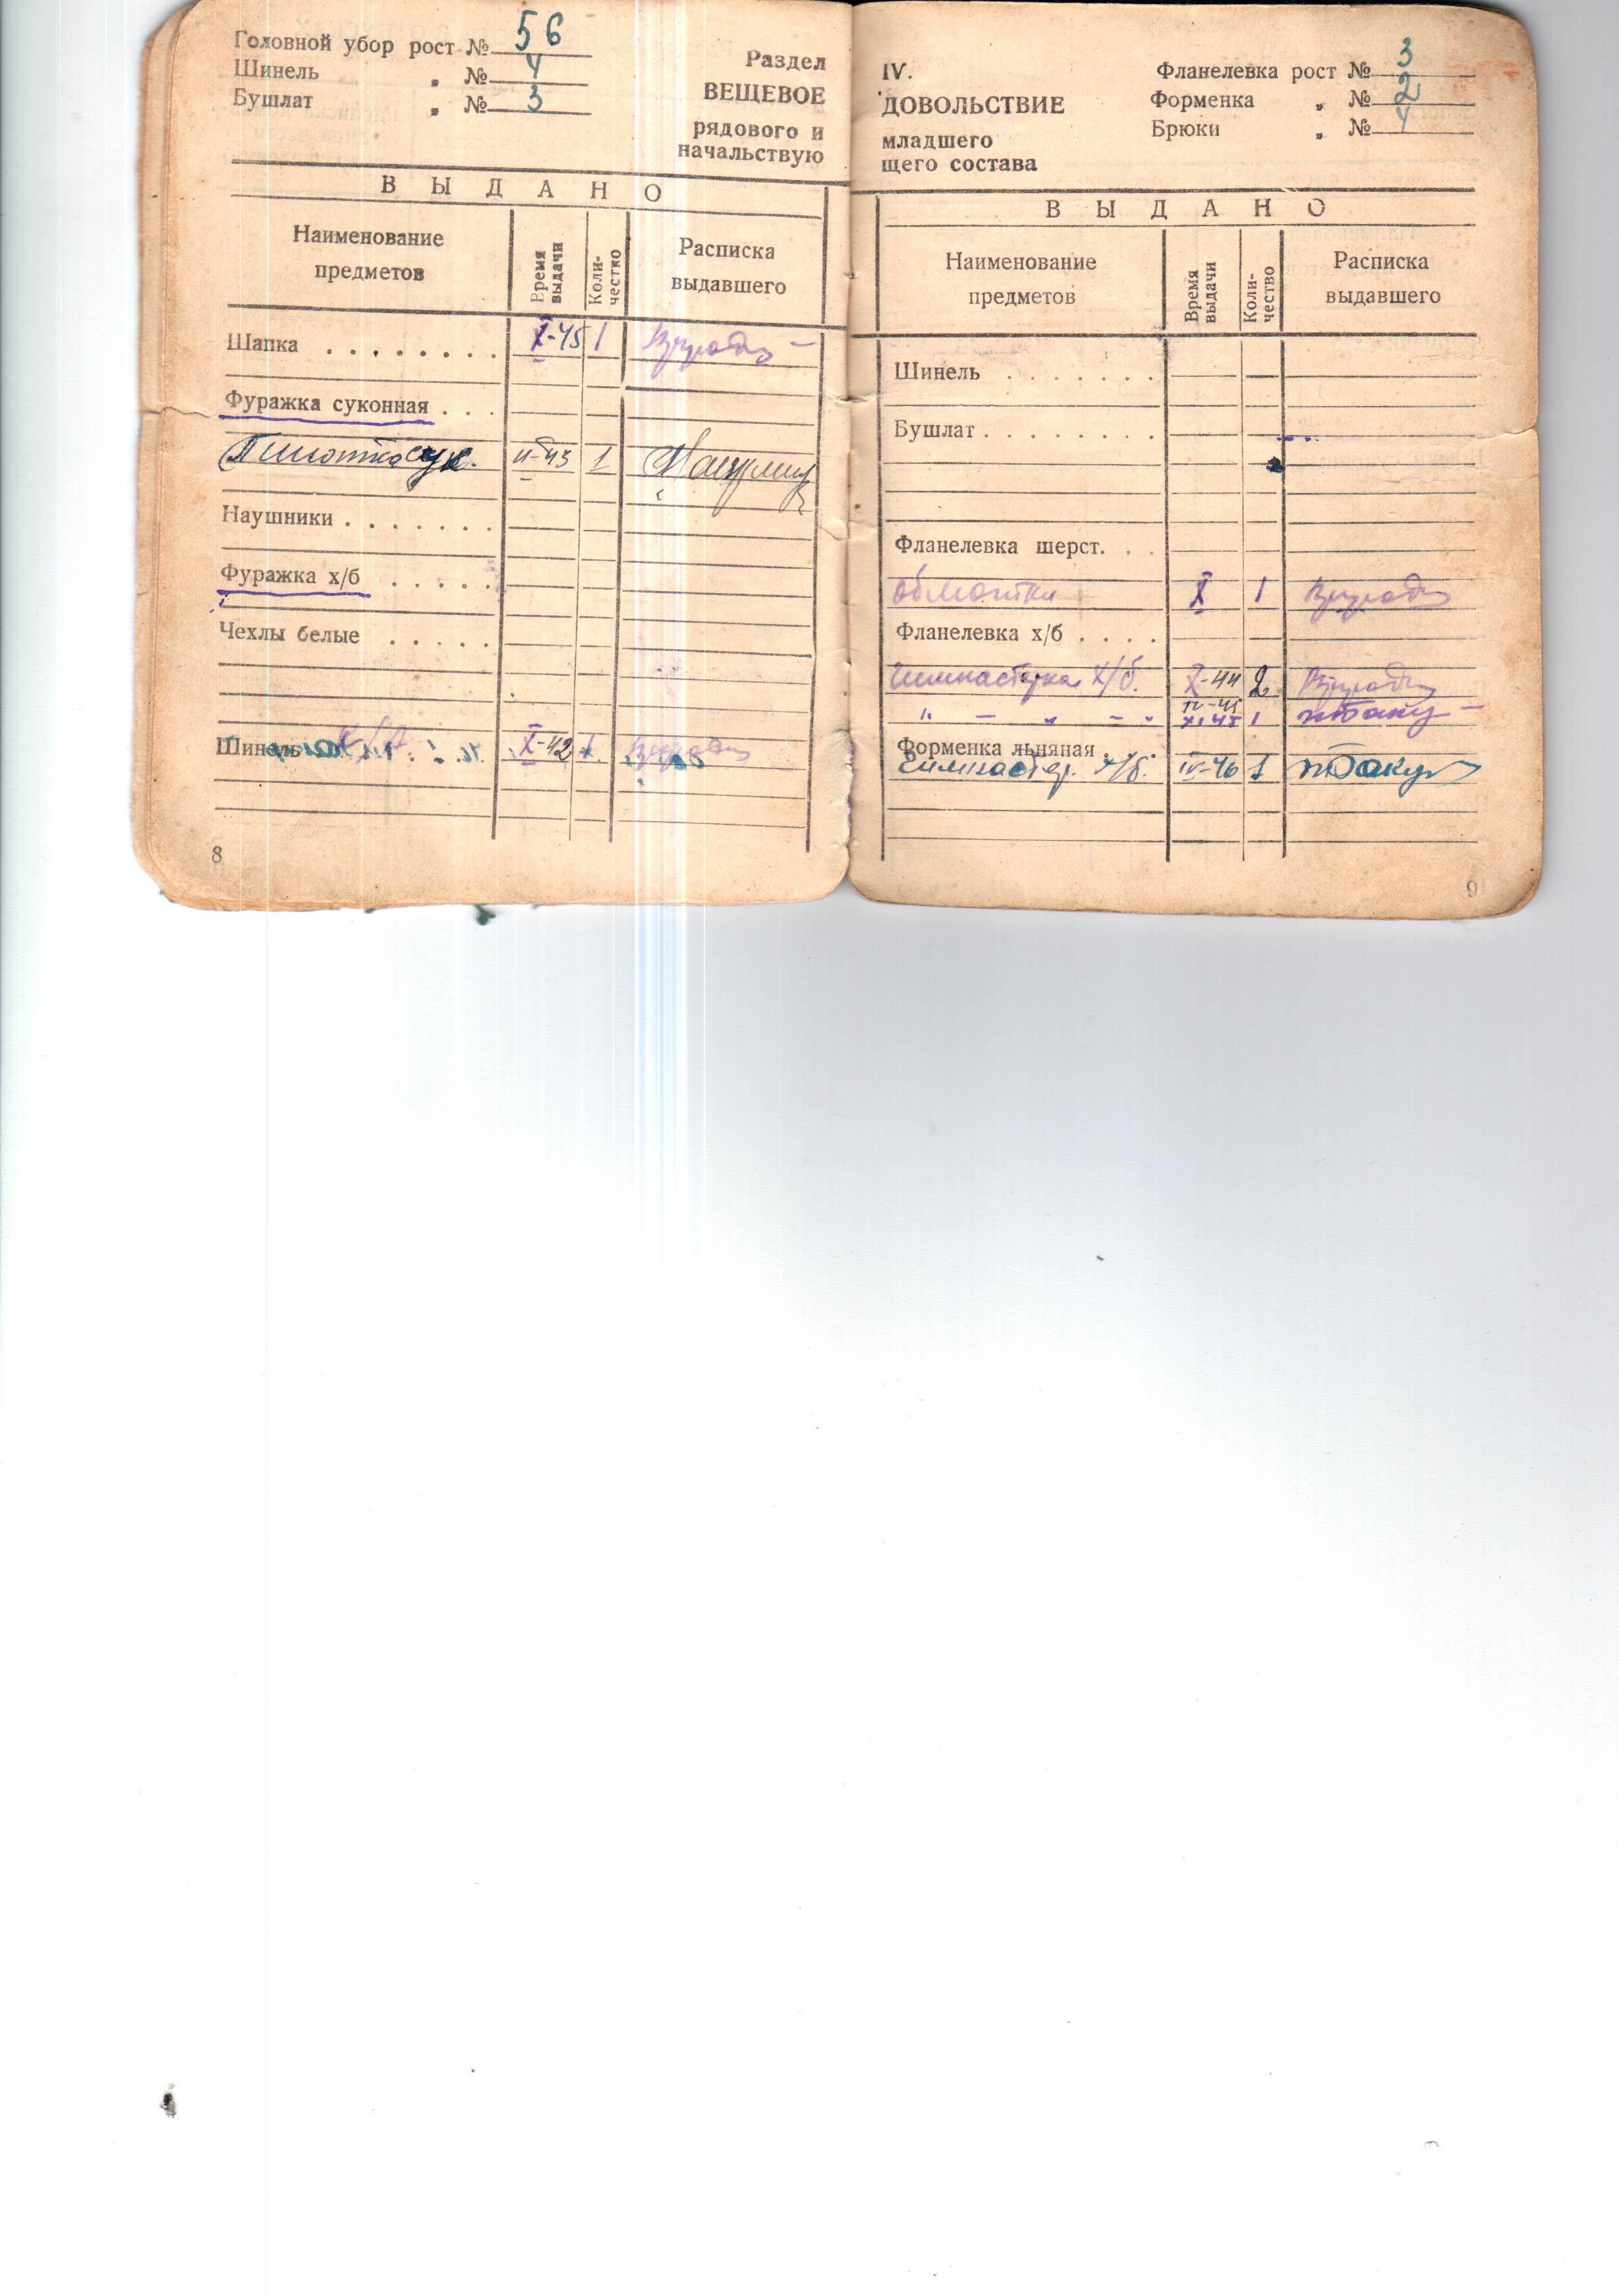 Головной убор рост № 56
Шинель „ № 4
Бушлат „ № 3
Раздел
ВЕЩЕВОЕ
рядового и
начальствую
ВЫДАНО
Наименование предметов
Время выдачи
Коли-честко
Расписка выдавшего
Шапка . . . . . . . . X-45 1
Фуражка суконная . . .
Пилотка сук. 1
Наушники . . . . . . .
Фуражка х/б . . . . .
Чехлы белые . . . . .
Шинель X-42 1
8
IV.
ДОВОЛЬСТВИЕ
младшего
щего состава
Фланелевка рост № 3
Форменка „ № 2
Брюки „ № 4
ВЫДАНО
Наименование предметов
Время выдачи
Коли-чество
Расписка выдавшего
Шинель . . . . . . .
Бушлат . . . . . . . .
Фланелевка шерст. . .
обмотки X 1
Фланелевка х/б . . . .
Гимнастерка х/б. X-44 2
„ — „ — „ 1
Форменка льняная . . .
Гимнастер. х/б. IV-46 1
9